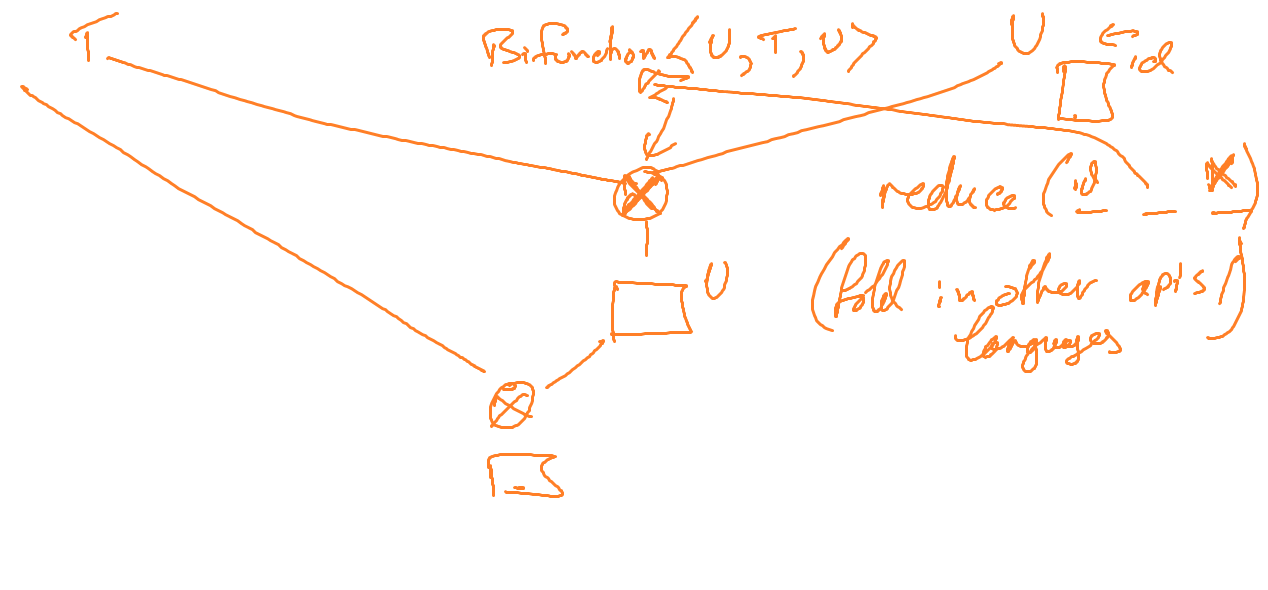 T
Bifunction <U, T, U>
U
← id
reduce (id _ _ )
(fold in other apis/
languages)
U